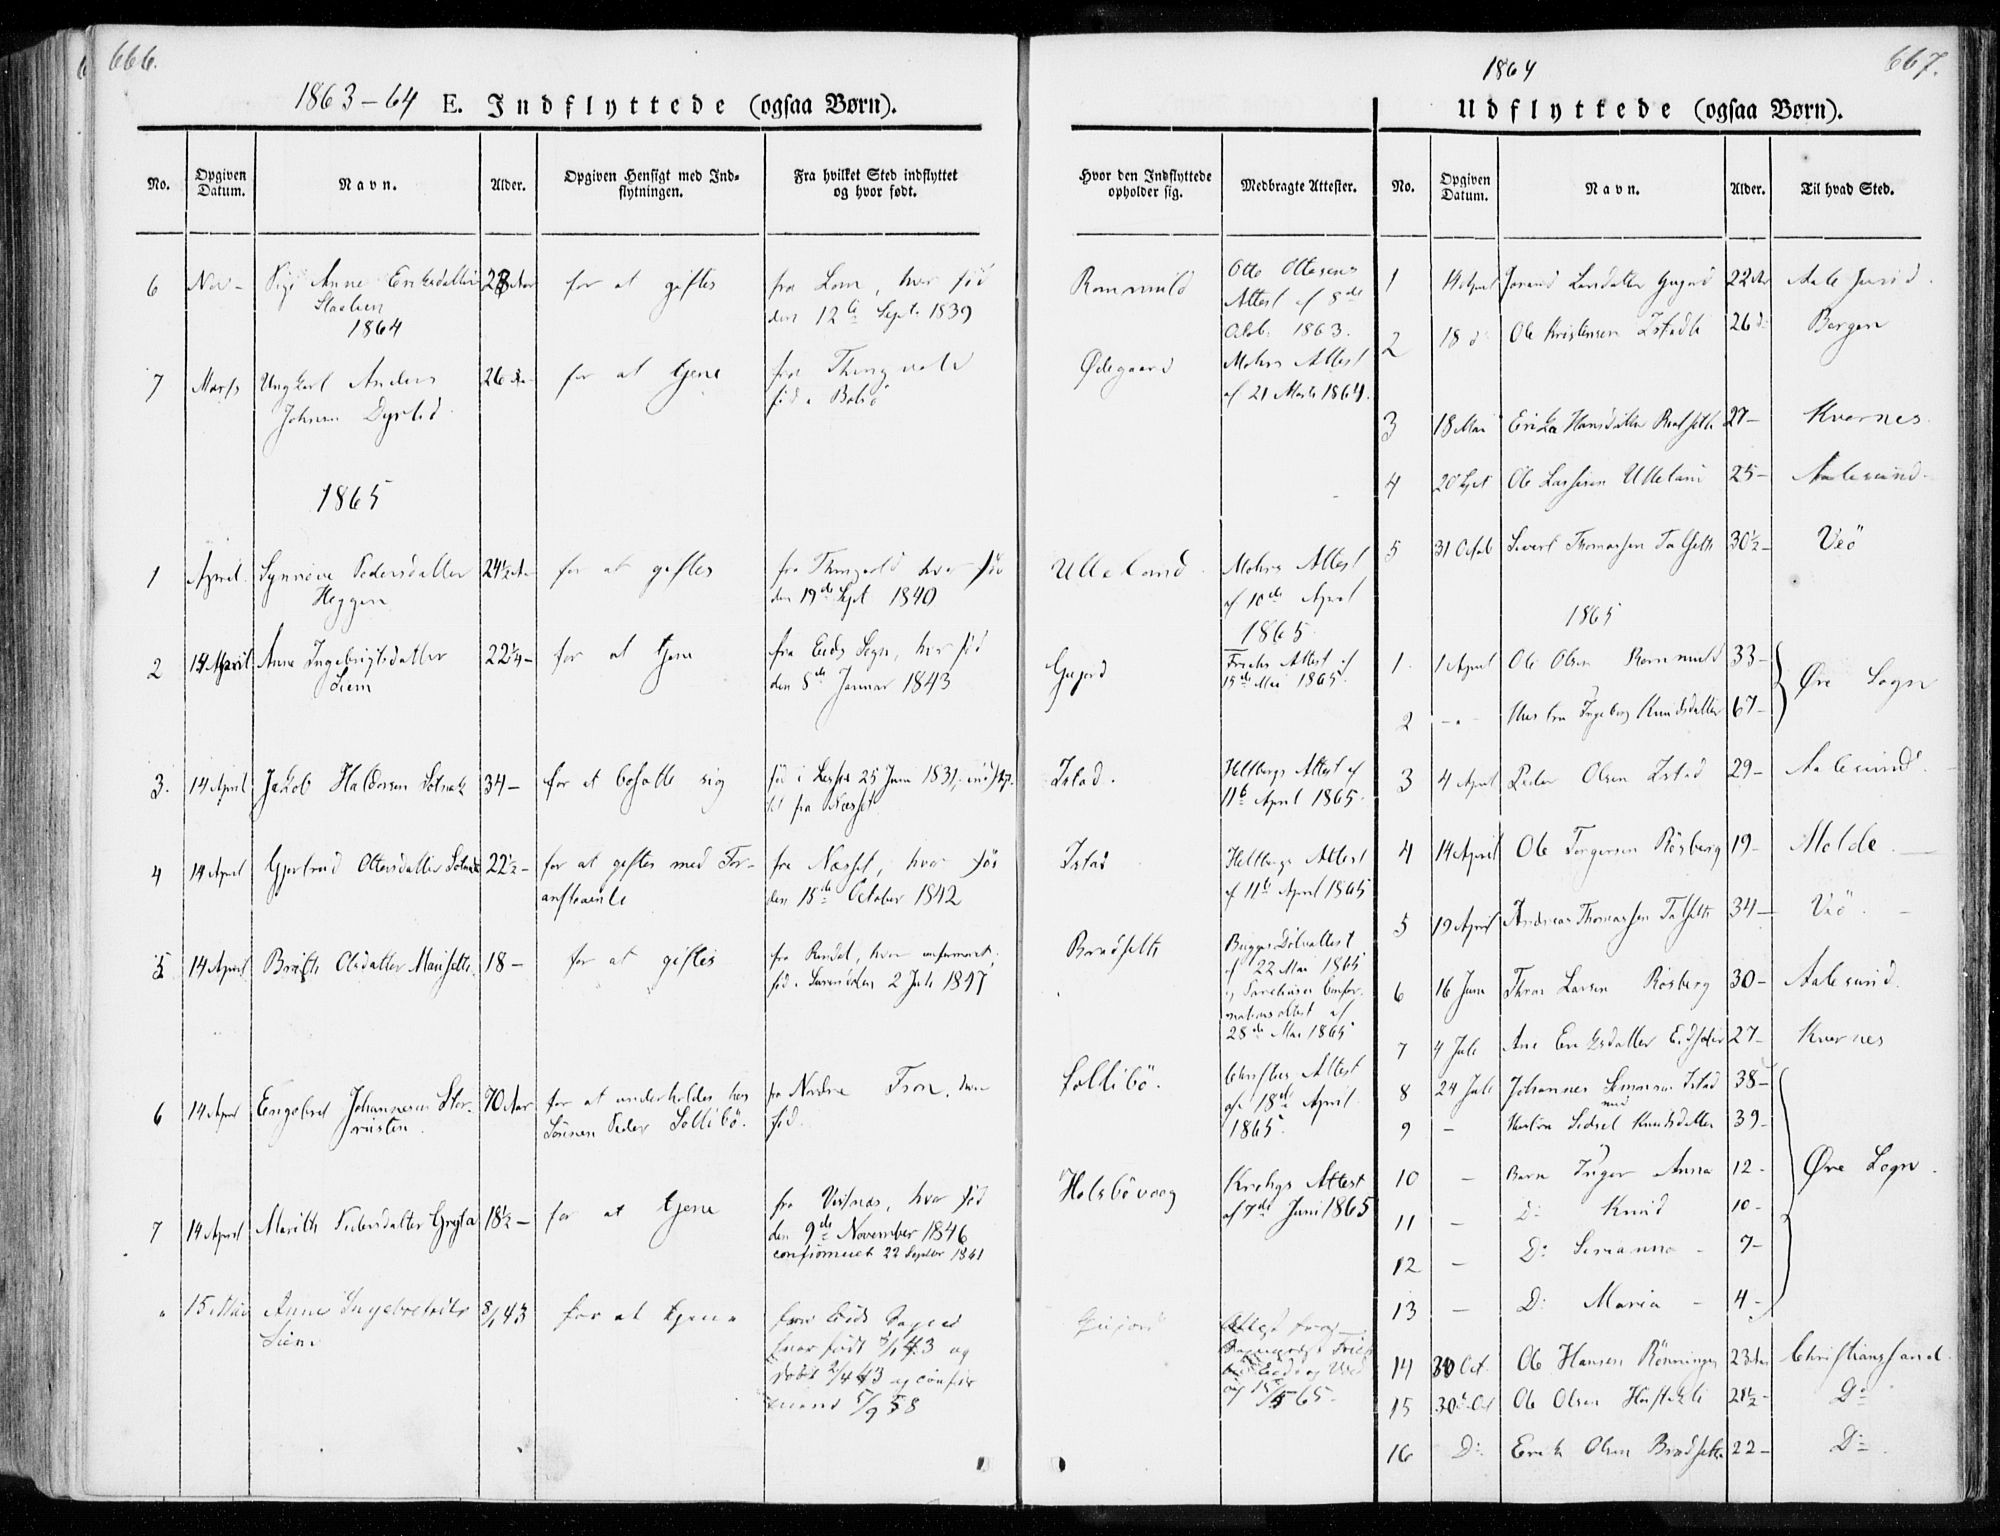 666.
1863-64 E. Indflyttede (ogsaa Børn).
No. Opgiven Datum. Navn. Alder. Opgiven Hensigt med Indflytningen. Fra hvilket Sted indflyttet og hvor født.
6 Nov - Pige Anne Eriksdatter 23 Aar for at giftes fra Lom, hvor fød
den 12te Sept. 1839
1864
7 Marts Ungkarl Anders 26 for at tjene fra Thingvold
Johnsen fød i Bolsö
1865
1 April Synnöve Pedersdatter 24½ Aar for at giftes fra Thingvold hvor fød
Heggen den 19de Sept 1840
2 14 April Anne Ingebrigtsdatter 22¼ - for at tjene fra Eids Sogn, hvor fød
Liem den 8de Januar 1843
3. 14 April Jakob Haldorsen 34 - for at bosætte sig fød i Lesje 25 Juni 1831,
fra Næsset
4 14 April Gjertrud Ottersdatter 22½ - for at giftes med For- fra Næsset, hvor fød
anstaaende den 15de October 1842
5 14 April Brith Olsdatter 18 - for at giftes fra Rindal, hvor confirmeret,
fød i Surendalen 2 Juli 1847
6 14 April Engebret Johannesen Stor- 70 Aar for at underholdes hos fra Nordre Fron, hvor
Sönnen Peder Sollibö. fød.
7 14 April Marith Pedersdatter Gryta 18½ - for at tjene fra Vestnæs, hvor fød
den 9de November 1846
confirmeret 22 Septbr 1861
" 15 Mai Anne Ingebretsdtr 8/1 43 for at tjene fra Eids Sogn
Liem hvor født 8/1 43 og
döbt 2/4 43 og confir
5/9 58
667.
1864
Udflyttede (ogsaa Børn).
Hvor den Indflyttede opholder sig. Medbragte Attester. No. Opgiven Datum. Navn. Alder. Til hvad Sted.
Rommuld Otto Ottesens
Attest af 8de
Octob. 1863.
Ødegaard Mohrs Attest
af 21 Marts 1864.
Ulleland Mohrs Attest
af 10de April
1865.
Gujord Frichs Attest af
15de Mai 1865.
Istad. Heltbergs Attest af
11te April 1865.
Istad Heltbergs Attest
af 11te April 1865
Bradseth Bugges
af 22 Mai 1865
28de Mai 1865
Sollibö. Attest
af 18de April
1865.
Holsbövaag Krohgs Attest
af 7de Juni 1865
Gujord Attest fra
Eids og
af 15/5 65.
1 14 April Larsdatter Gujord 22 Aar Aalesund.
2 18 d: Ole Kristensen 26 d: Bergen
3 18 Mai Erika Hansdatter 27 - Kvernes
4 20 Sept Ole Larssen Ulleland 25 - Aalesund -
5 31 Octob Sivert Thomassen Talseth 30½ - Veö
1865
1. 1 April Ole Olsen Rommuld 33 -
2 - " - Hustru Ingeborg Knudsdatter 67 - Øre Sogn
3 4 April Peder Olsen Istad 29 - Aalesund
4 14 April Ole Torgersen Rösberg 19 - Molde
5 19 April Andreas Thomassen Talseth 34 - Veö. -
6 16 Juni Thron Larsen Rösberg 30 - Aalesund.
7 4 Juli Ane Eriksdatter 27 - Kvernes
8 24 Juli Johannes Simonsen Istad 38 -
9 - Hustru Sidsel Knudsdatter 39 -
10 - Barn Inger Anna 12 - Øre Sogn.
11 - D: Knud 10 -
12 - D: - 7 -
13 - D: Maria - 4 -
14 30 Oct. Ole Hansen Rönningen 23 Aar Christianssand
15 30 Oct Ole Olsen 21½ - Do
16 D: Erik Olsen Bradseth 22 - Do